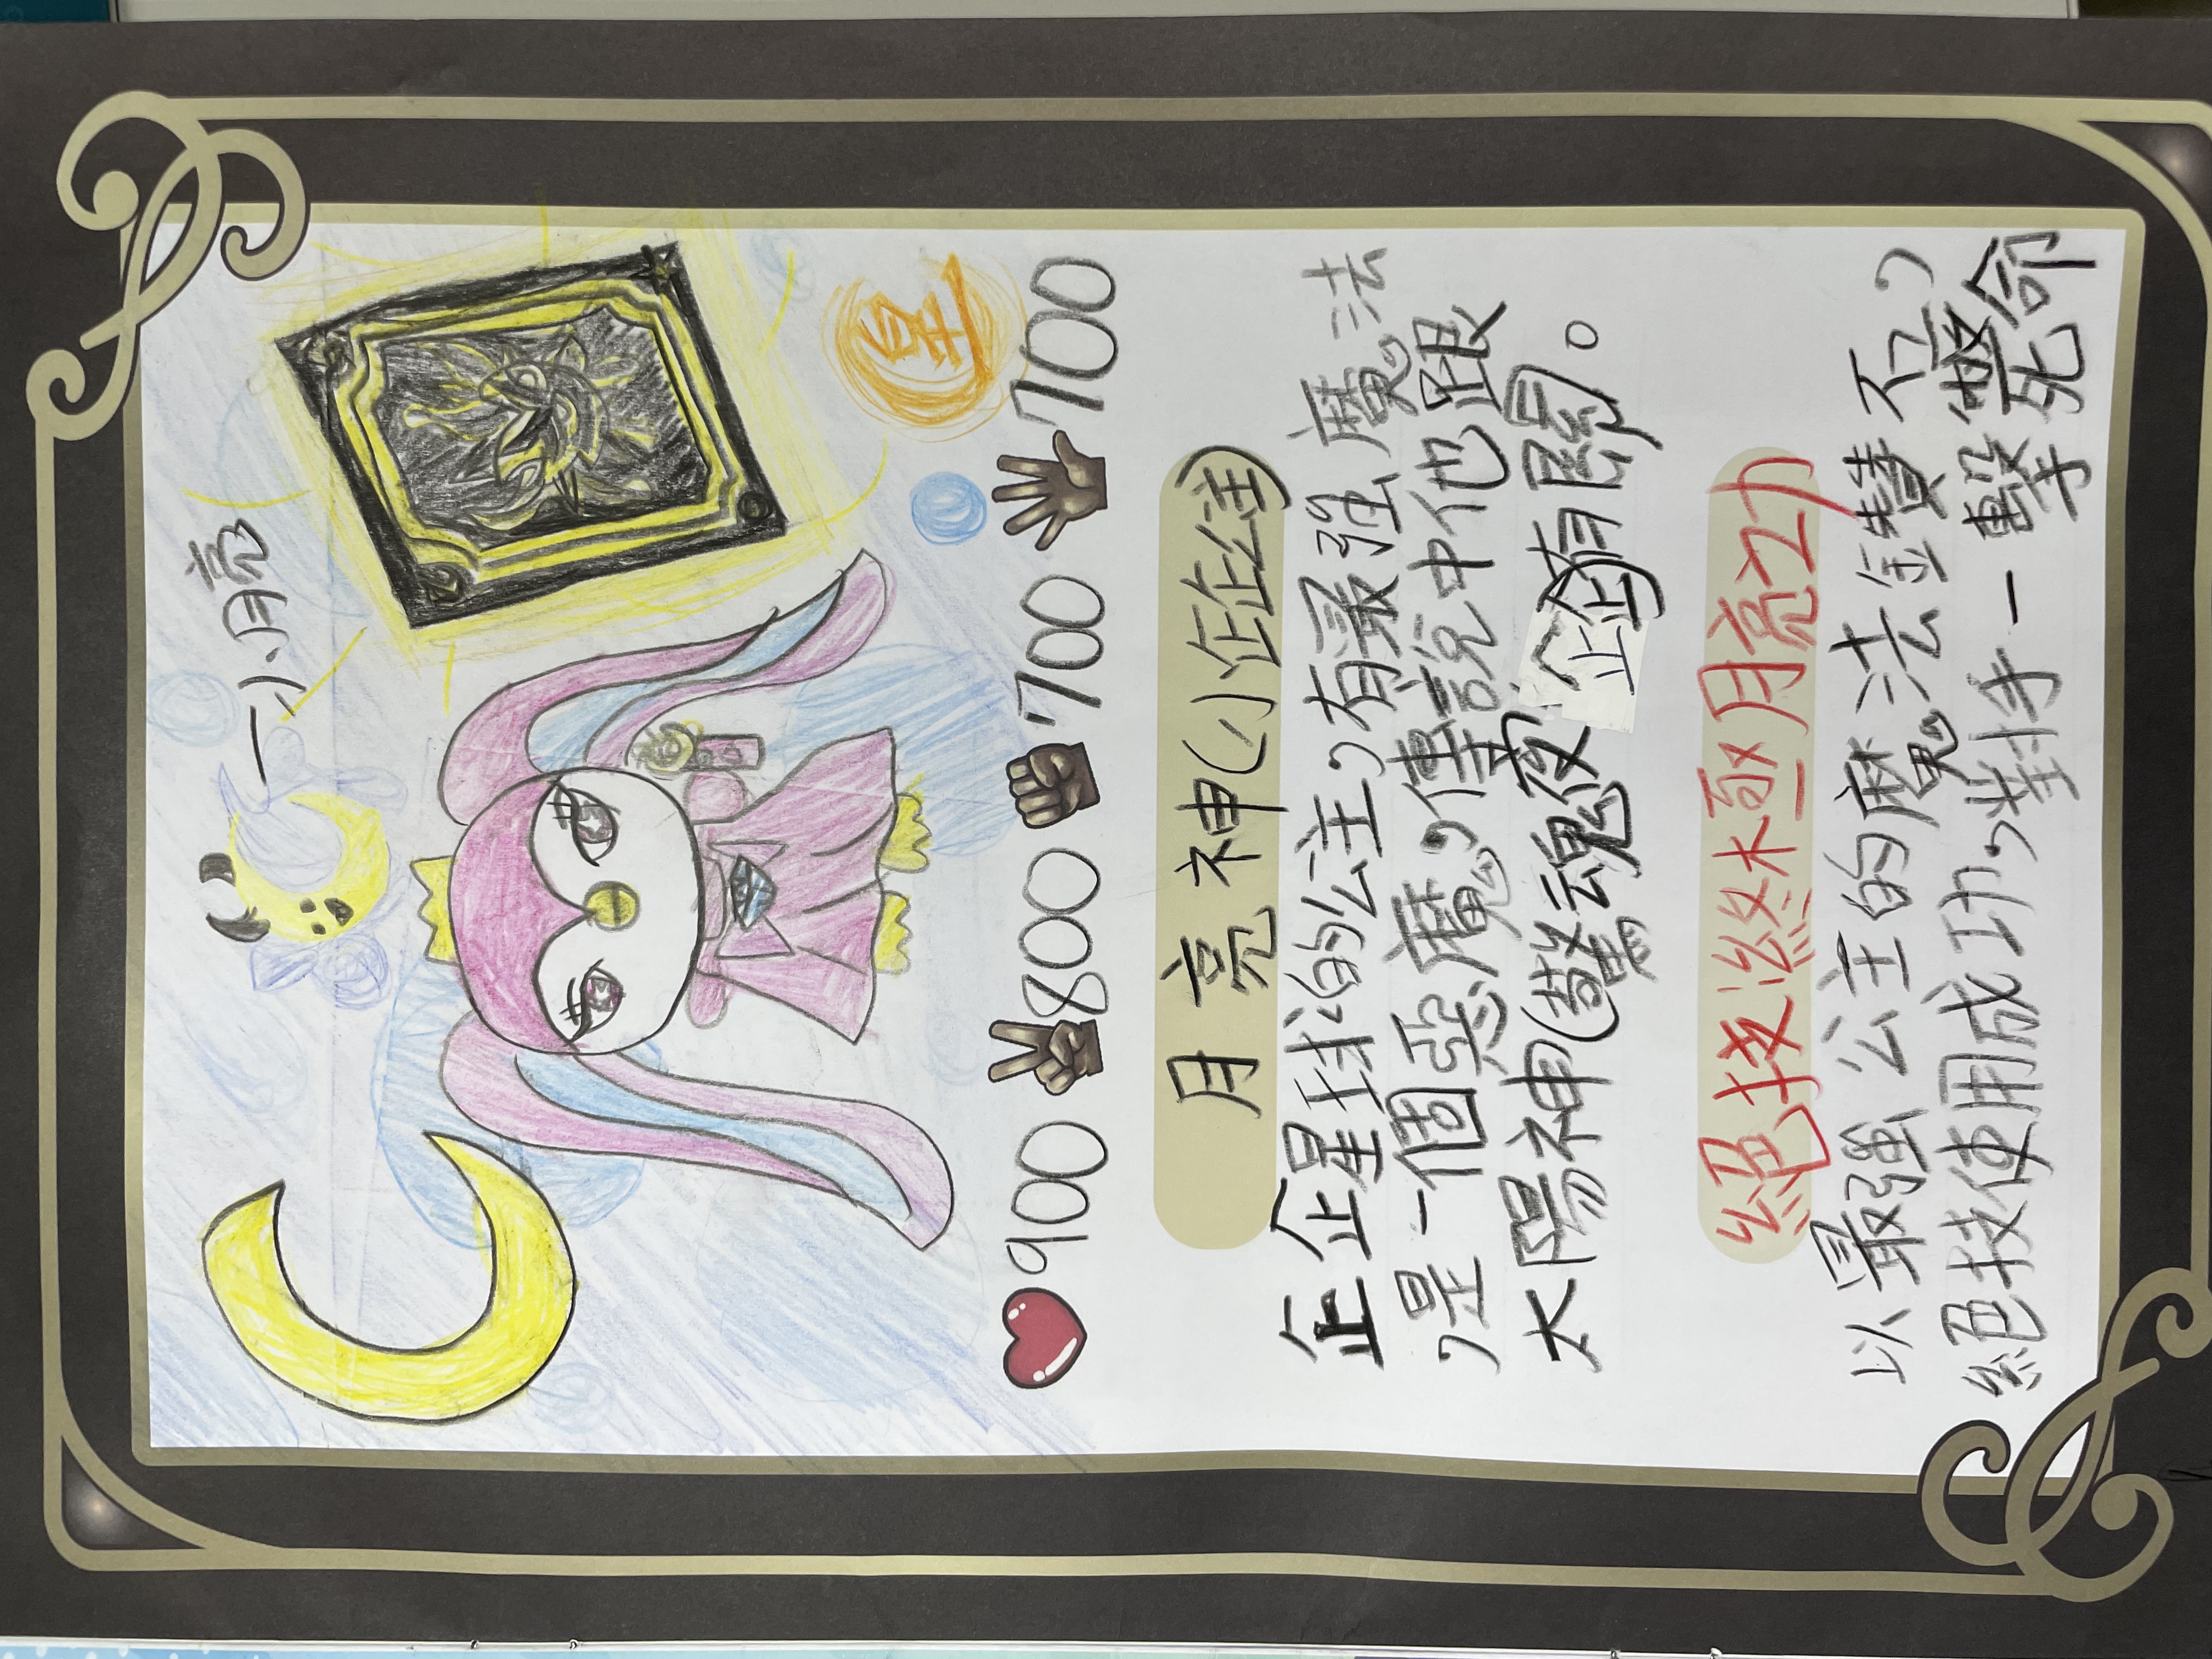 —小月亮
900 800 700 700
月亮神(小企企主)
企企星球的公主,有最強魔法
,是一個惡魔,傳說中他跟
太陽神(驚魂夜企)有關。
絕技終極月亮功
以最強公主的魔法鑽石,
絕技使用成功,對手一擊斃命